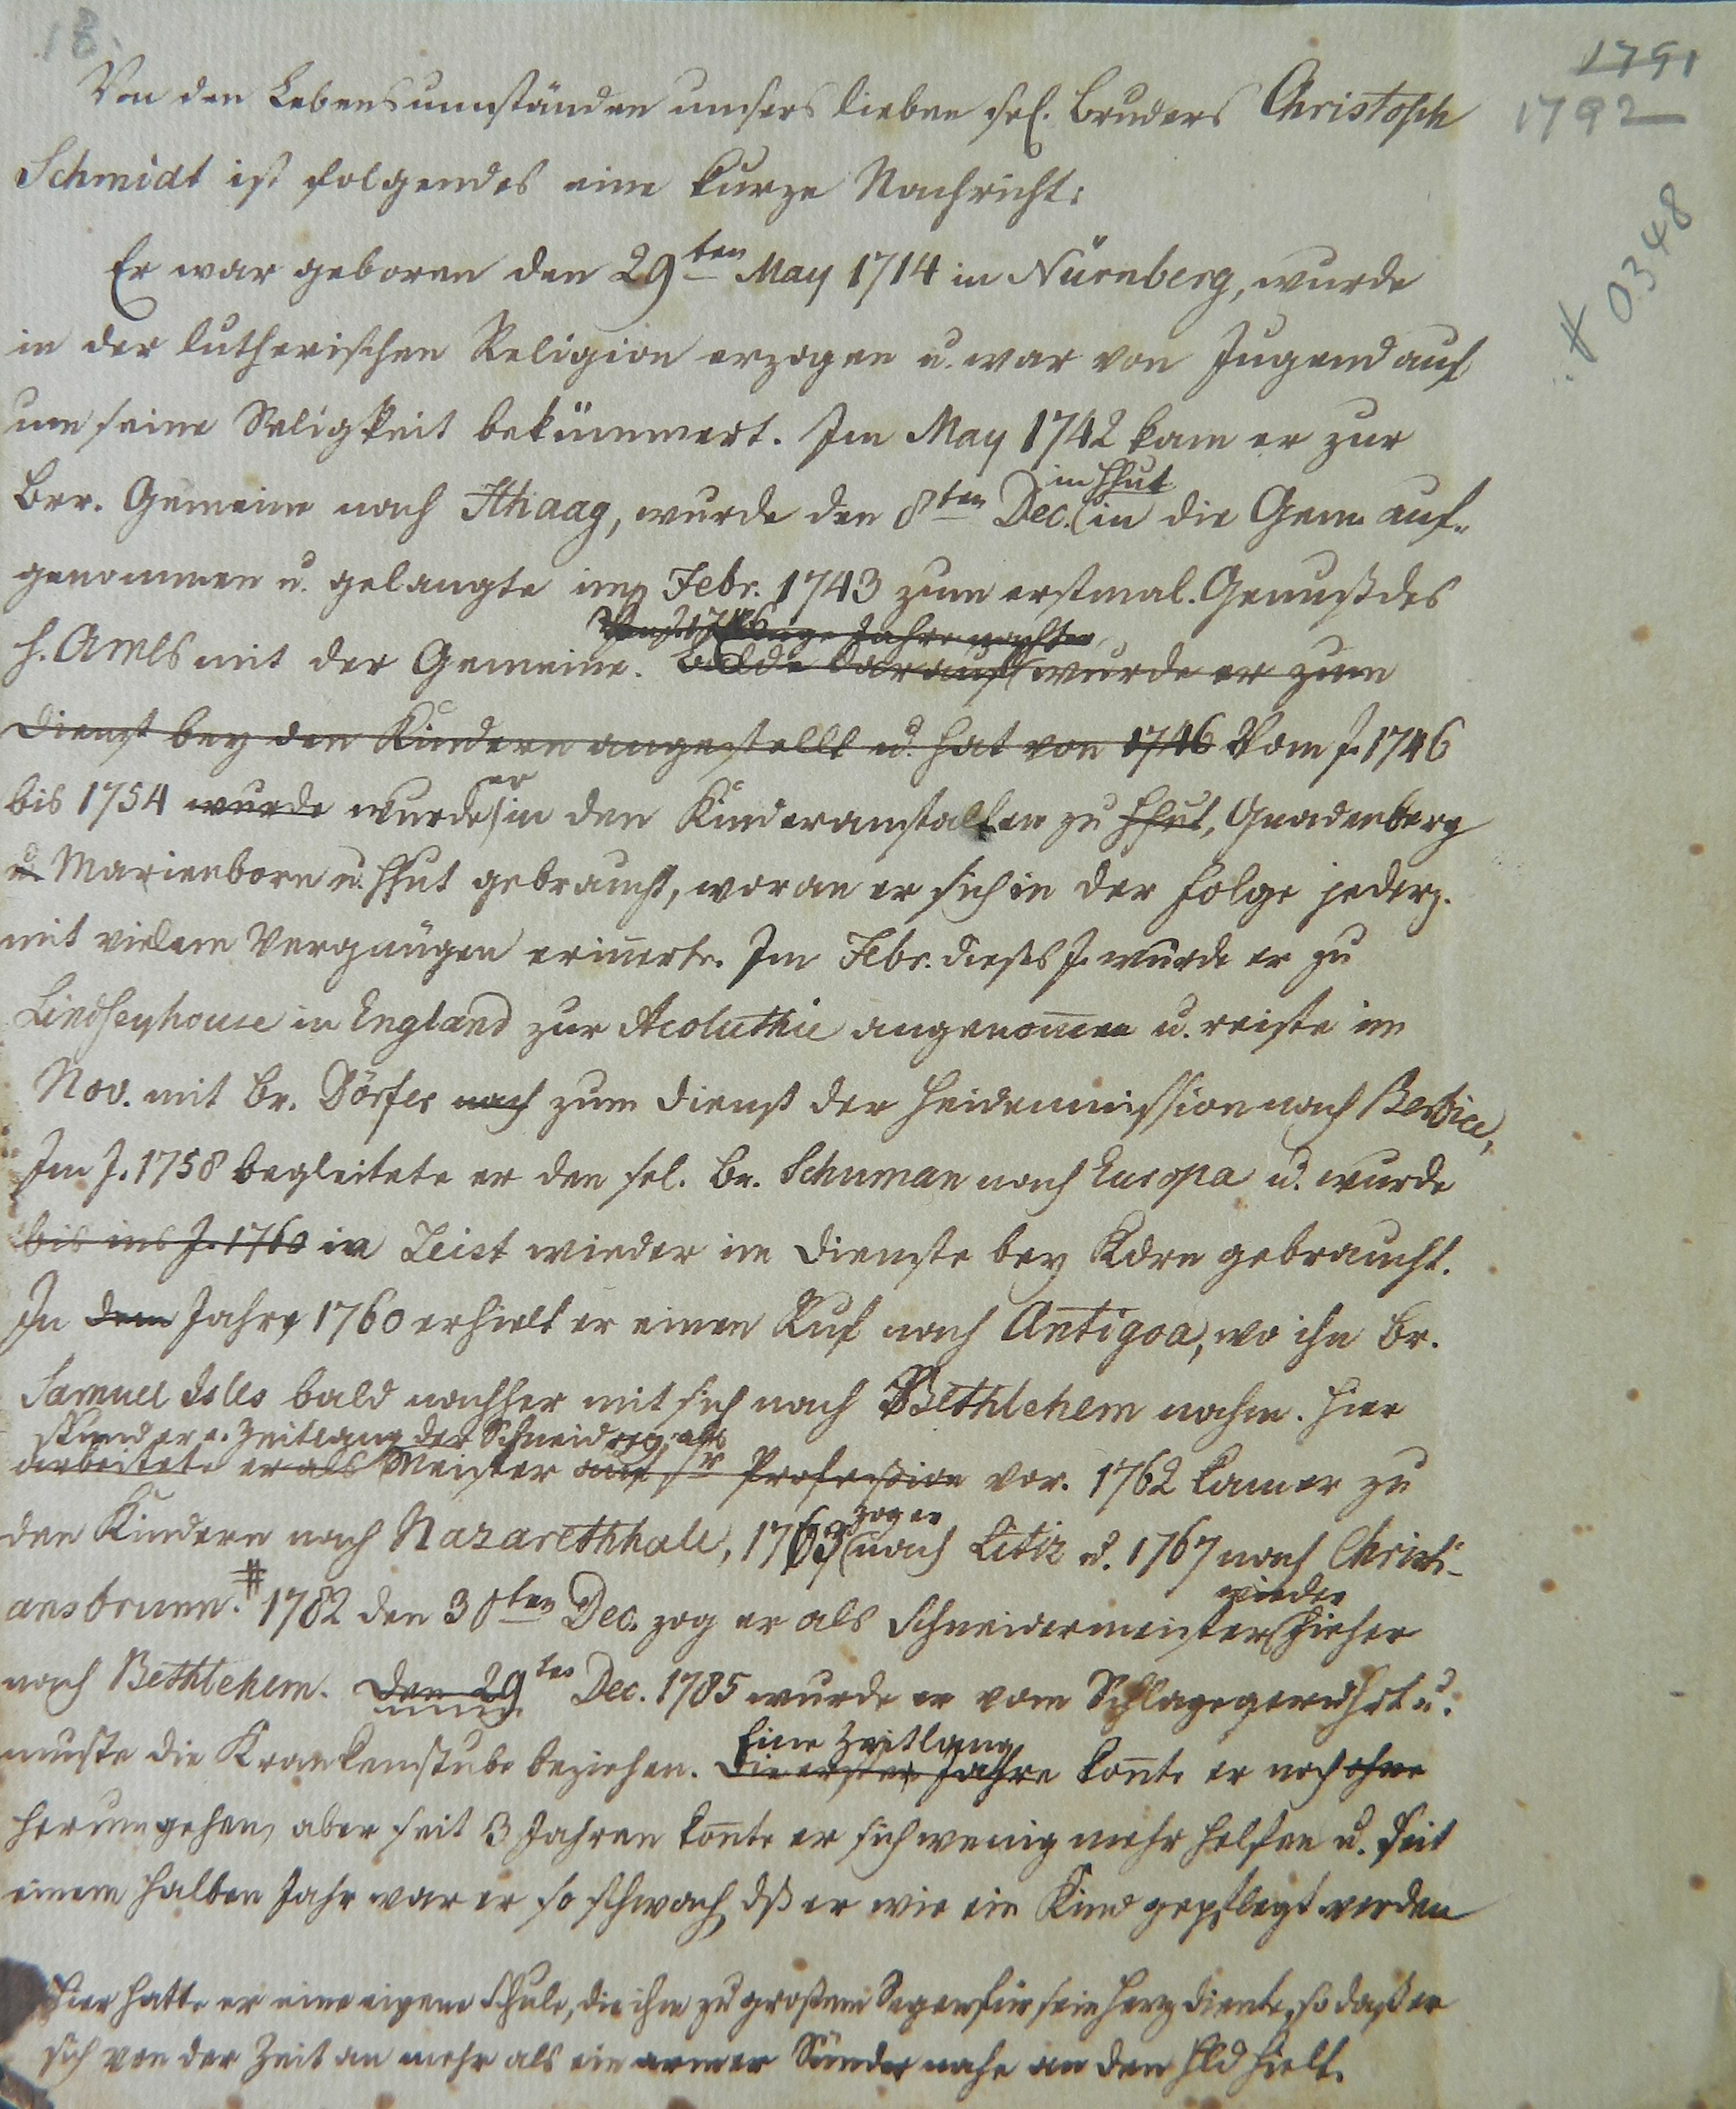 18.
1791
1792
# 0348
Von den Lebensumständen unsers lieben sel. Bruders Christoph
Schmidt ist folgendes eine kurze Nachricht:
Er war geboren den 29ten May 1714 in Nürnberg, wurde
in der lutherischen Religion erzogen u. war von Jugend auf
um seine Seligkeit bekümmert. Im May 1742 kam er zur
Brr. Gemeine nach HHaag, wurde den 8ten Dec. in Hhut in die Gem. auf-
genommen u. gelangte im Febr. 1743 zum erstmal. Genuß des
h. Amls mit der Gemeine. einige Jahre nachher
Balde darauf wurde er zum
Dienst bey den Kindern angestellt u. hat von 1746 Vom J. 1746
bis 1754 wurde wurde er in den Kinderanstalten zu Hhut, Gnadenberg
u. Marienborn u. Hhut gebraucht, woran er sich in der Folge jederz.
mit vielem Vergnügen erinnerte. Im Febr. dieses J. wurde er zu
Lindseyhouse in England zur Acoluthie angenommen u. reiste im
Nov. mit Br. Dörfer nach zum Dienst der Heidenmission nach Berbice,
Im J. 1758 begleitete er den sel. Br. Schuman nach Europa u. wurde
bis ins J. 1760 in Zeist wieder im Dienste bey Kdrn gebraucht.
In dem Jahre 1760 erhielt er einen Ruf nach Antigoa, wo ihn Br.
Samuel Isles bald nachher mit sich nach Bethlehem nahm. Hier
stund er e. Zeitlang der Schneiderey als
arbeitete er als Meister auf sr Profession vor. 1762 kam er zu
den Kindern nach Nazarethhall, 1763 zog er nach Litiz u. 1767 nach Christi-
ansbrunn. # 1782 den 30ten Dec. zog er als Schneidermeister wieder hieher
nach Bethlehem. Den 29ten Dec. 1785 wurde er vom Schlage gerührt u.
muste die Krankenstube beziehen. Die ersten Jahre Eine Zeitlang konte er noch ohne
herumgehen, aber seit 3 Jahren konte er sich wenig mehr helfen u. seit
einem halben Jahr war er so schwach, dß er wie ein Kind gepflegt werden
Hier hatte er eine eigene Schule, die ihm zu großem Segen für sein Herz diente, so daß er
sich von der Zeit an mehr als ein armer Sünder nahe an den Hld hielt.